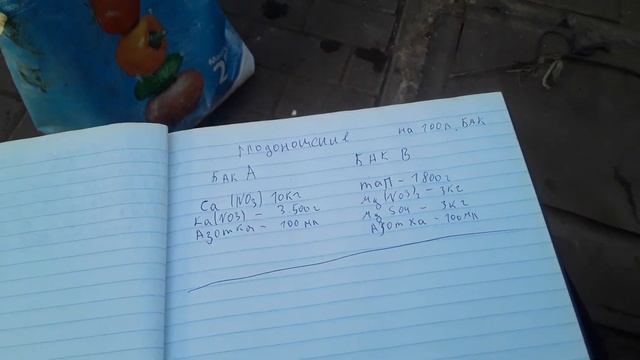 Плодоношение на 100л. БАК
БАК А
Ca (NO3) 10кг
Ka(NO3) - 3.500г
Азотка - 100 мл
БАК В
тап - 1800г
Mg(NO3)2 - 3кг
Mg SO4 - 3кг
Азотка - 100мл
2